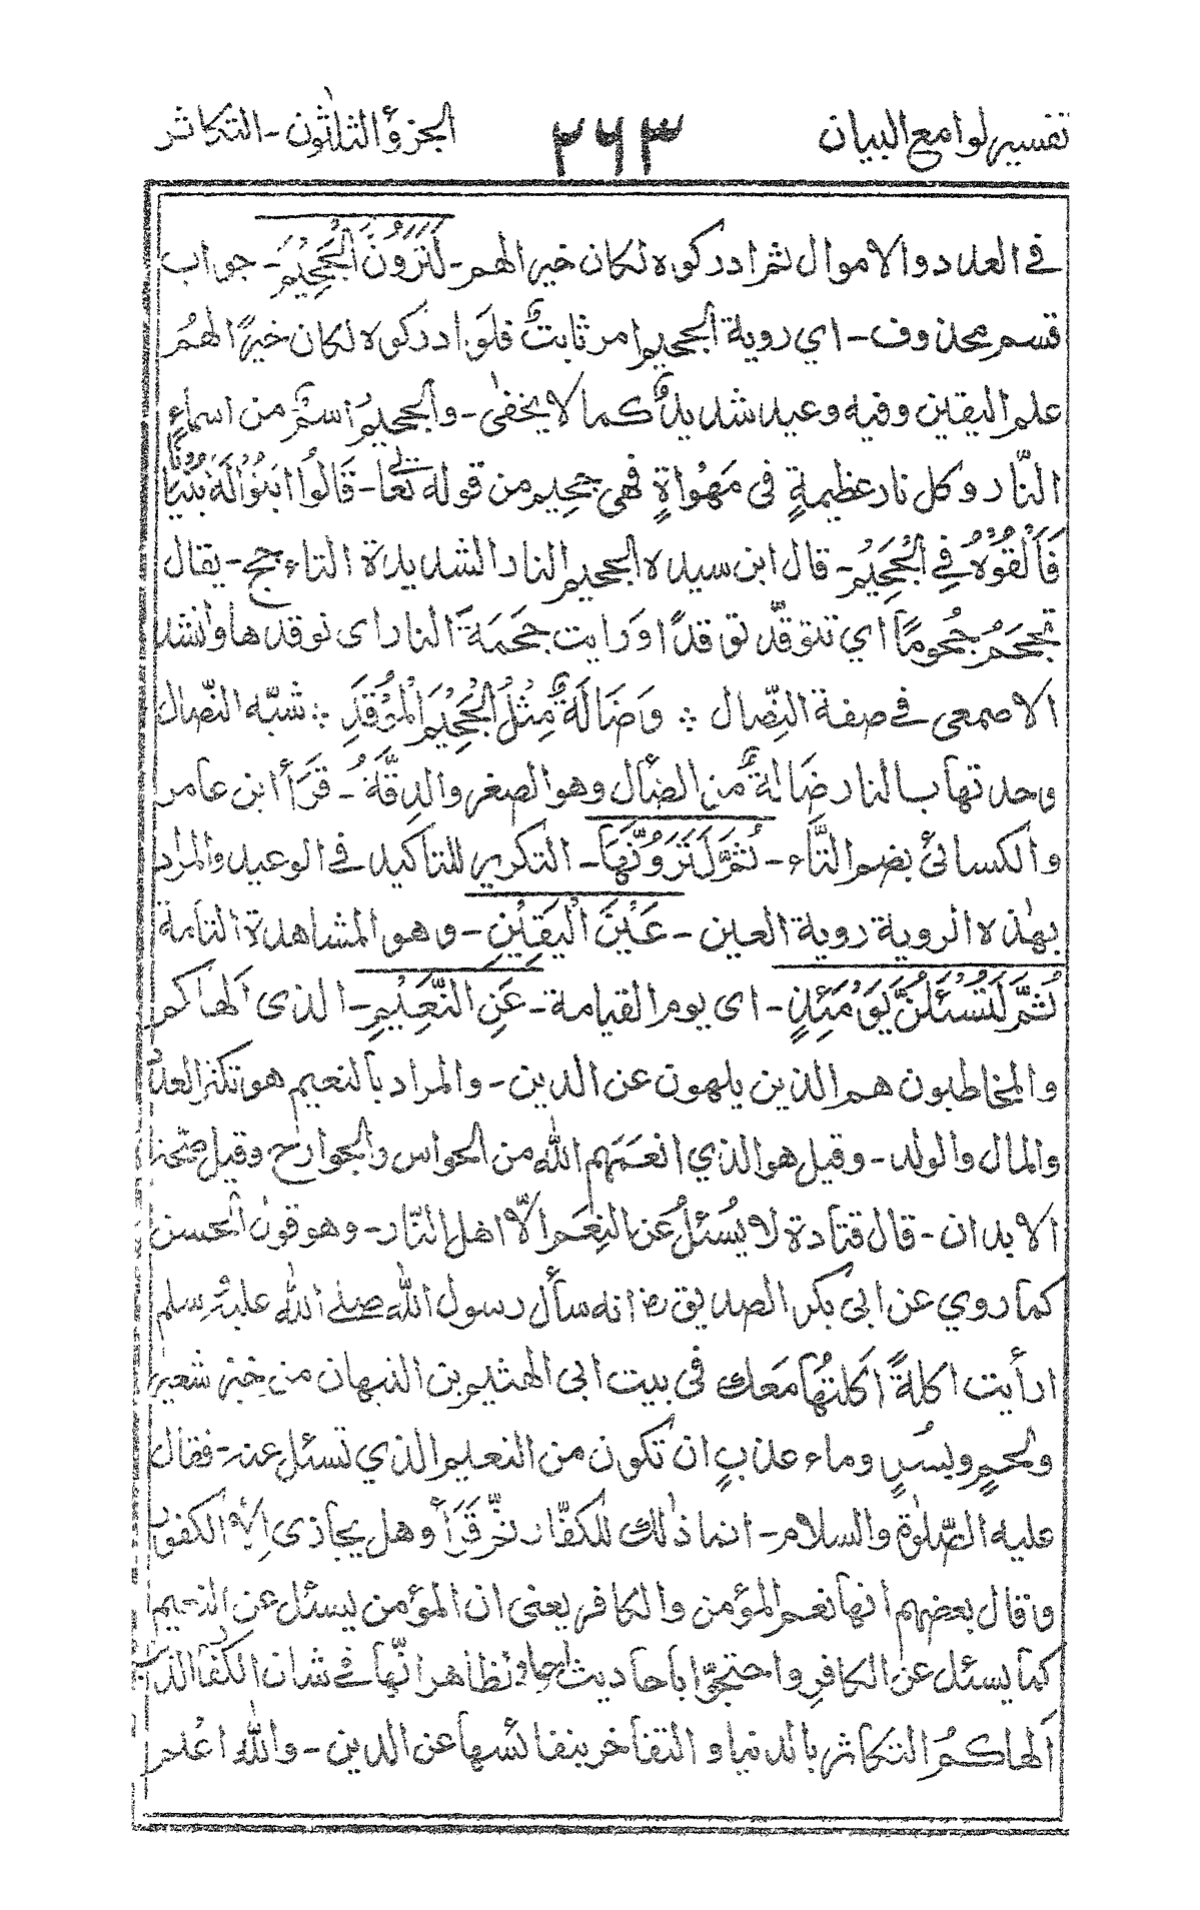 تفسير لوامع البيان ٢٦٣ الجزؤ الثلاثون - التكاثر
في العدد والاموال ثم ادركوه لكان خيرا لهم - لَتَرَوُنَّ الْجَحِيْمَ - جواب
قسم محذوف - اي روية الجحيم امر ثابتٌ فلو ادركوه لكان خيرًا لهم
علم اليقين وفيه وعيد شديدٌ كما لا يخفى - والجحيمُ اسمٌ من اسماءِ
النّار وكل نار عظيمةٍ في مَهْواةٍ فهي جحيم من قوله تعالى - قَالُوا ابْنُوْا لَهٗ بُنْيَانًا
فَاَلْقُوْهُ فِي الْجَحِيْمِ - قال ابن سيده الجحيم النار الشديدة التاءجج - يقال
تجحَمُ جُحُومًا اي تتوقّد توقدًا ورايت جحمَةَ النار اى توقدها وانشد
الاصمعى في صفة النِّصال ؞ وَضَالَةٌ مِثْلُ الْجَحِيْمِ الْمُوْقَدِ ؞ شبّه النّصال
وحدتها بالنار ضَالةٌ من الضأل وهو الصغر والدِقَّةُ - قَرَأ ابن عامر
والكسائئ بضم التَّاء - ثُمَّ لَتَرَوُنَّهَا - التكرير للتاكيد في الوعيد والمراد
بهذه الروية روية العين - عَيْنَ الْيَقِيْنِ - وهو المشاهدة التامة
ثُمَّ لَتُسْئَلُنَّ يَوْمَئِذٍ - اى يوم القيامة - عَنِ النَّعِيْمِ - الذى الهاكم
والمخاطبون هم الذين يلهون عن الدين - والمراد بالنعيم هو تكثر العدد
والمال والولد - وقيل هو الذي انعَمَهم الله من الحواس والجوارح وقيل صحّة
الابدان - قال قتادة لا يُسْئلُ عن النِعَم الّا اهل النّار - وهو قول الحسن
كما روي عن ابى بكر الصديق رض انه سأل رسول الله صلى الله عليه وسلم
ارأيت اكلةً اكلتُها مَعك فى بيت ابى الهثيم بن التبهان من خبز شعير
ولحمٍ وبسُرٍ وماء عذبٍ ان تكون من النعيم الذي تسئل عنه - فقال
عليه الصّلوة والسلام - انما ذلك للكفّار ثمّ قَرَأ وهل يجازى الا الكفور
وقال بعضهم انها نعم المؤمن والكافر يعنى ان المؤمن يسئل عن النعيم
كما يسئل عن الكافر واحتجّوا باحاديث نظاهر انّها في شان الكفا الذين
اَلهاكمُ التكاثر بالدنيا والتفاخر بنفائسها عن الدين - والله اعلم